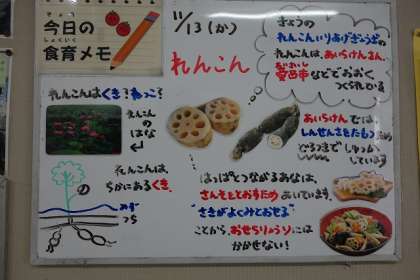 きょう
今日の
しょくいく
食育メモ
11/13(か)
れんこん
きょうの
れんこんいりあげぎょうざの
れんこんは、あいちけんさん。
あいさいし
愛西市などでおおく
つくられてる
れんこんはくき?ねっこ?
れんこん
の
はな
れんこんは、
ちかにあるくき。
の
みず
つち
あいちけんでは、
しんせんさをたもつため
どろつきでしゅっか
しています
はっぱとつながるあなは、
さんそをとおすためあいています。
"さきがよくみとおせる"
ことから、おせちりょうりには
かかせない!